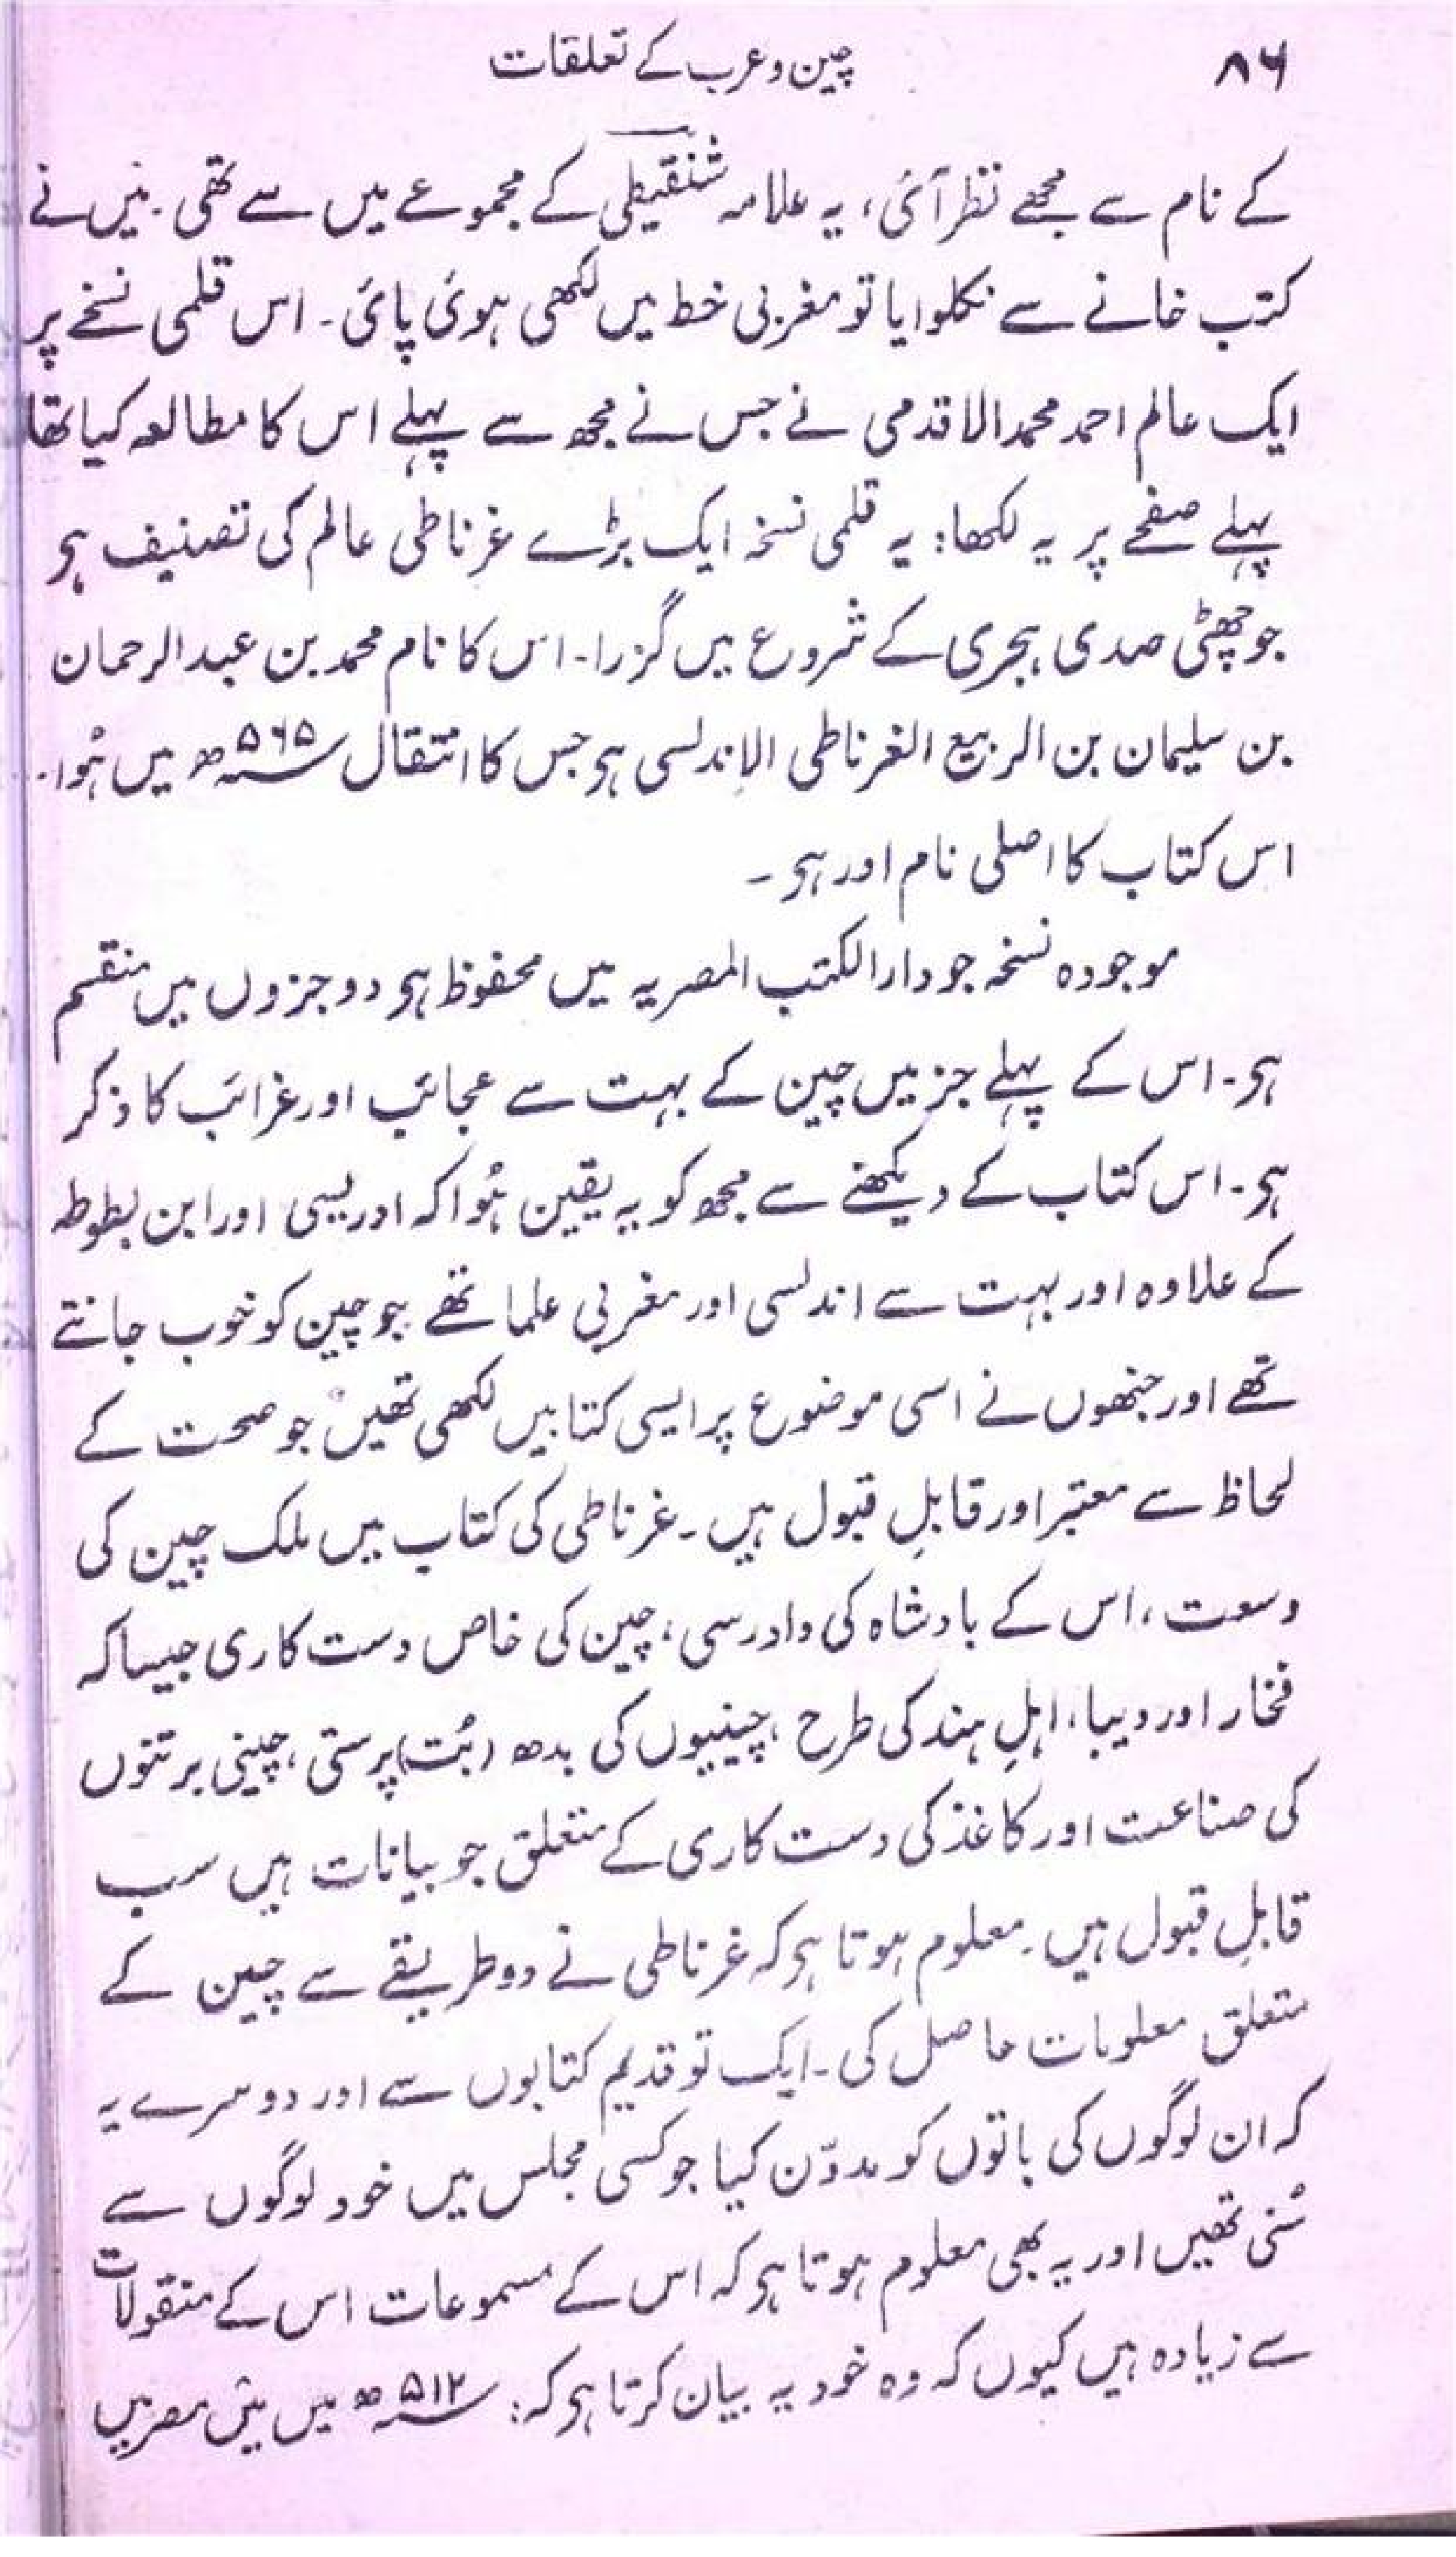 ۸۶
چین و عرب کے تعلقات
کے نام سے مجھے نظر آئی، یہ علامہ شنقیطی کے مجموعے میں سے تھی۔ میں نے
کتب خانے سے نکلوایا تو مغربی خط میں لکھی ہوئی پائی۔ اس قلمی نسخے پر
ایک عالم احمد محمد الاقدمی نے جس نے مجھ سے پہلے اس کا مطالعہ کیا تھا
پہلے صفحے پر یہ لکھا: یہ قلمی نسخہ ایک بڑے غرناطی عالم کی تصنیف ہی
جو چھٹی صدی ہجری کے شروع میں گزرا۔ اس کا نام محمد بن عبدالرحمان
بن سلیمان بن الربیع الغرناطی الاندلسی ہی جس کا انتقال ۵۶۵ھ میں ہُوا۔
اس کتاب کا اصلی نام اور ہی۔
موجودہ نسخہ جو دارالکتب المصریہ میں محفوظ ہی دو جزوں میں منقسم
ہی۔ اس کے پہلے جز میں چین کے بہت سے عجائب اور غرائب کا ذکر
ہی۔ اس کتاب کے دیکھنے سے مجھ کو یہ یقین ہُوا کہ ادریسی اور ابن بطوطہ
کے علاوہ اور بہت سے اندلسی اور مغربی علما تھے جو چین کو خوب جانتے
تھے اور جنھوں نے اسی موضوع پر ایسی کتابیں لکھی تھیں جو صحت کے
لحاظ سے معتبر اور قابلِ قبول ہیں۔ غرناطی کی کتاب میں ملک چین کی
وسعت، اس کے بادشاہ کی دادرسی، چین کی خاص دست کاری جیسا کہ
فخار اور دیبا، اہلِ ہند کی طرح، چینیوں کی بدھ (بُت) پرستی، چینی برتنوں
کی صناعت اور کاغذ کی دست کاری کے متعلق جو بیانات ہیں سب
قابلِ قبول ہیں۔ معلوم ہوتا ہی کہ غرناطی نے دو طریقے سے چین کے
متعلق معلومات حاصل کی۔ ایک تو قدیم کتابوں سے اور دوسرے یہ
کہ ان لوگوں کی باتوں کو مدوّن کیا جو کسی مجلس میں خود لوگوں سے
سُنی تھیں اور یہ بھی معلوم ہوتا ہی کہ اس کے مسموعات اس کے منقولات
سے زیادہ ہیں کیوں کہ وہ خود یہ بیان کرتا ہی کہ: ۵۱۲ھ میں مَیں مصر میں